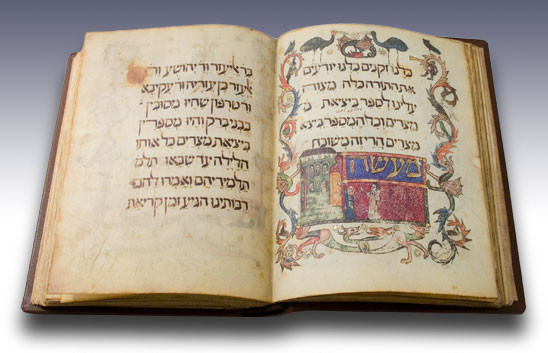 כלנו זקנים כלנו יודעים
את התורה כלה מצוה
עלינו לספר ביציאת
מצרים וכל המספר
מצרים הרי זה משובח
מעשה
בר אליעזר ור יהושע ור
אלעזר בן עזריה ור עקיבא
ור טרפון שהיו מסובין
בבני ברק והיו מספרין
ביציאת מצרים כל אותו
הלילה עד שבאו תלמ
תלמידיהם ואמרו להם
רבותינו הגיע זמן קריאת